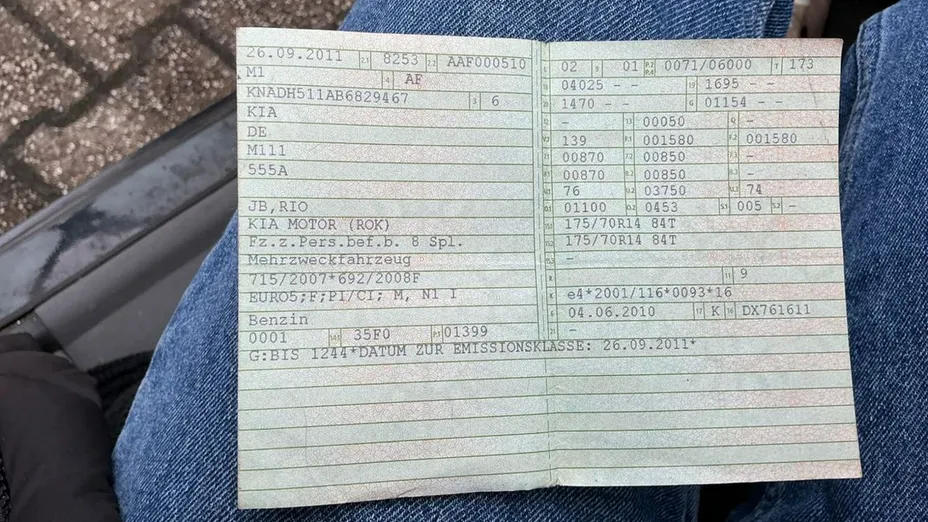 26.09.2011 2.1 8253 2.2 AAF000510
M1 4 AF
KNADH511AB6829467 3 6
KIA
DE
M111
555A
JB,RIO
KIA MOTOR (ROK)
Fz.z.Pers.bef.b. 8 Spl.
Mehrzweckfahrzeug
715/2007*692/2008F
EURO5;F;PI/CI; M, N1 I
Benzin
0001 14.1 35F0 P.1 01399
G:BIS 1244*DATUM ZUR EMISSIONSKLASSE: 26.09.2011*
L 02 9 01 P.2 P.4 0071/06000 T 173
18 04025 - - 19 1695 - -
20 1470 - - G 01154 - -
12 - 13 00050 Q -
V.7 139 F.1 001580 F.2 001580
7.1 00870 7.2 00850 7.3 -
8.1 00870 8.2 00850 8.3 -
U.1 76 U.2 03750 U.3 74
O.1 01100 O.2 0453 S.1 005 S.2 -
15.1 175/70R14 84T
15.2 175/70R14 84T
15.3 -
R 11 9
K e4*2001/116*0093*16
6 04.06.2010 17 K 16 DX761611
21 -